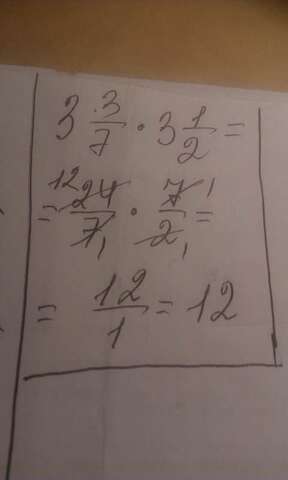 3 3/7 · 3 1/2 =
= 12 24/7 1 · 7 1/2 1 =
= 12/1 = 12